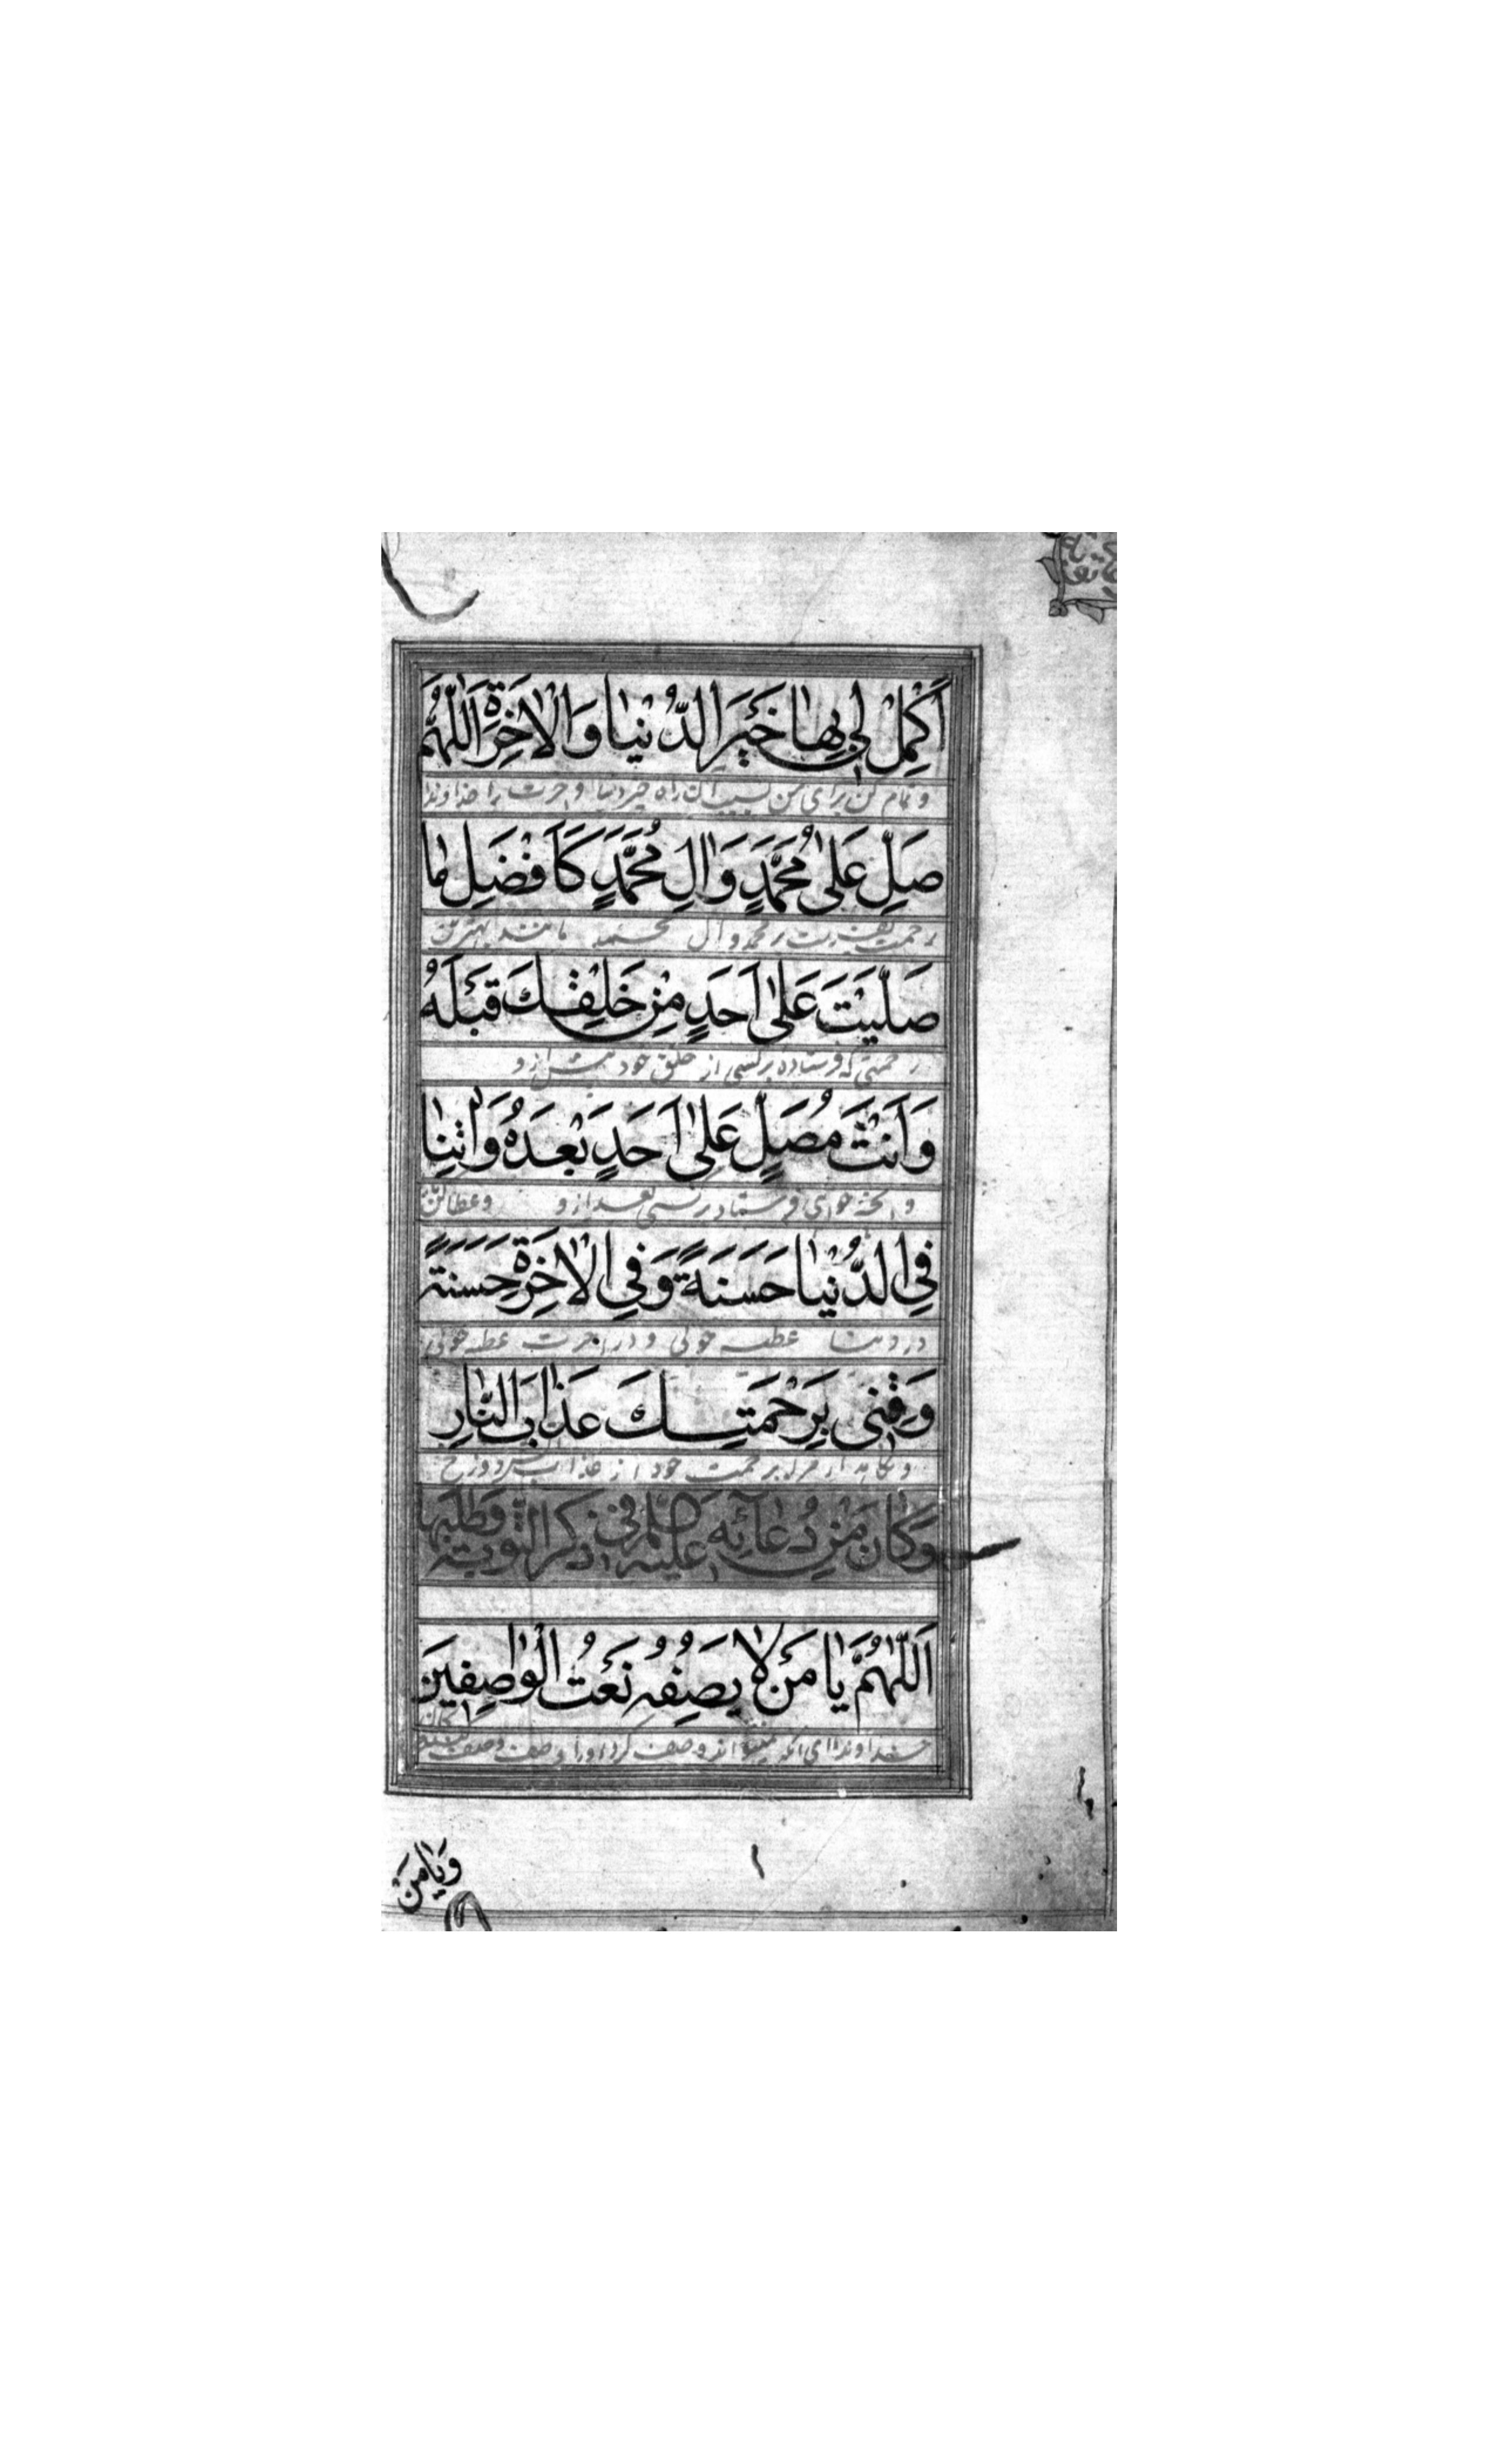 أَكْمِلْ لِي بِهَا خَيْرَ الدُّنْيَا وَالْآخِرَةِ اَللّٰهُمَّ
و تمام کن برای من بسبب آن راه خیر دنیا و آخرت را خداوندا
صَلِّ عَلَى مُحَمَّدٍ وَآلِ مُحَمَّدٍ كَأَفْضَلِ مَا
رحمت بفرست بر محمد و آل محمد مانند بهترین
صَلَّيْتَ عَلَى أَحَدٍ مِنْ خَلْقِكَ قَبْلَهُ
رحمتی که فرستاده بر کسی از خلق خود پیش از و
وَأَنْتَ مُصَلٍّ عَلَى أَحَدٍ بَعْدَهُ وَآتِنَا
و خواهی فرستاد بر کسی بعد از و و عطا کن
فِي الدُّنْيَا حَسَنَةً وَفِي الْآخِرَةِ حَسَنَةً
در دنیا عطیه خوبی و در آخرت عطیه خوبی
وَقِنِي بِرَحْمَتِكَ عَذَابَ النَّارِ
و نگاهدار مرا برحمت خود از عذاب دوزخ
وَكَانَ مِنْ دُعَائِهِ عليه السلم في ذكر التوبة وطلبها
اَللّٰهُمَّ يَا مَنْ لَا يَصِفُهُ نَعْتُ الْوَاصِفِينَ
خداوندا ای آنکه نمیتواند وصف کرد او را وصف وصف کنندگان
وَيَا مَنْ